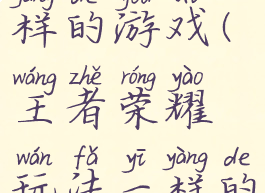 样的游戏(
wáng zhě róng yào
王者荣耀
wán fǎ yī yàng de
玩法一样的